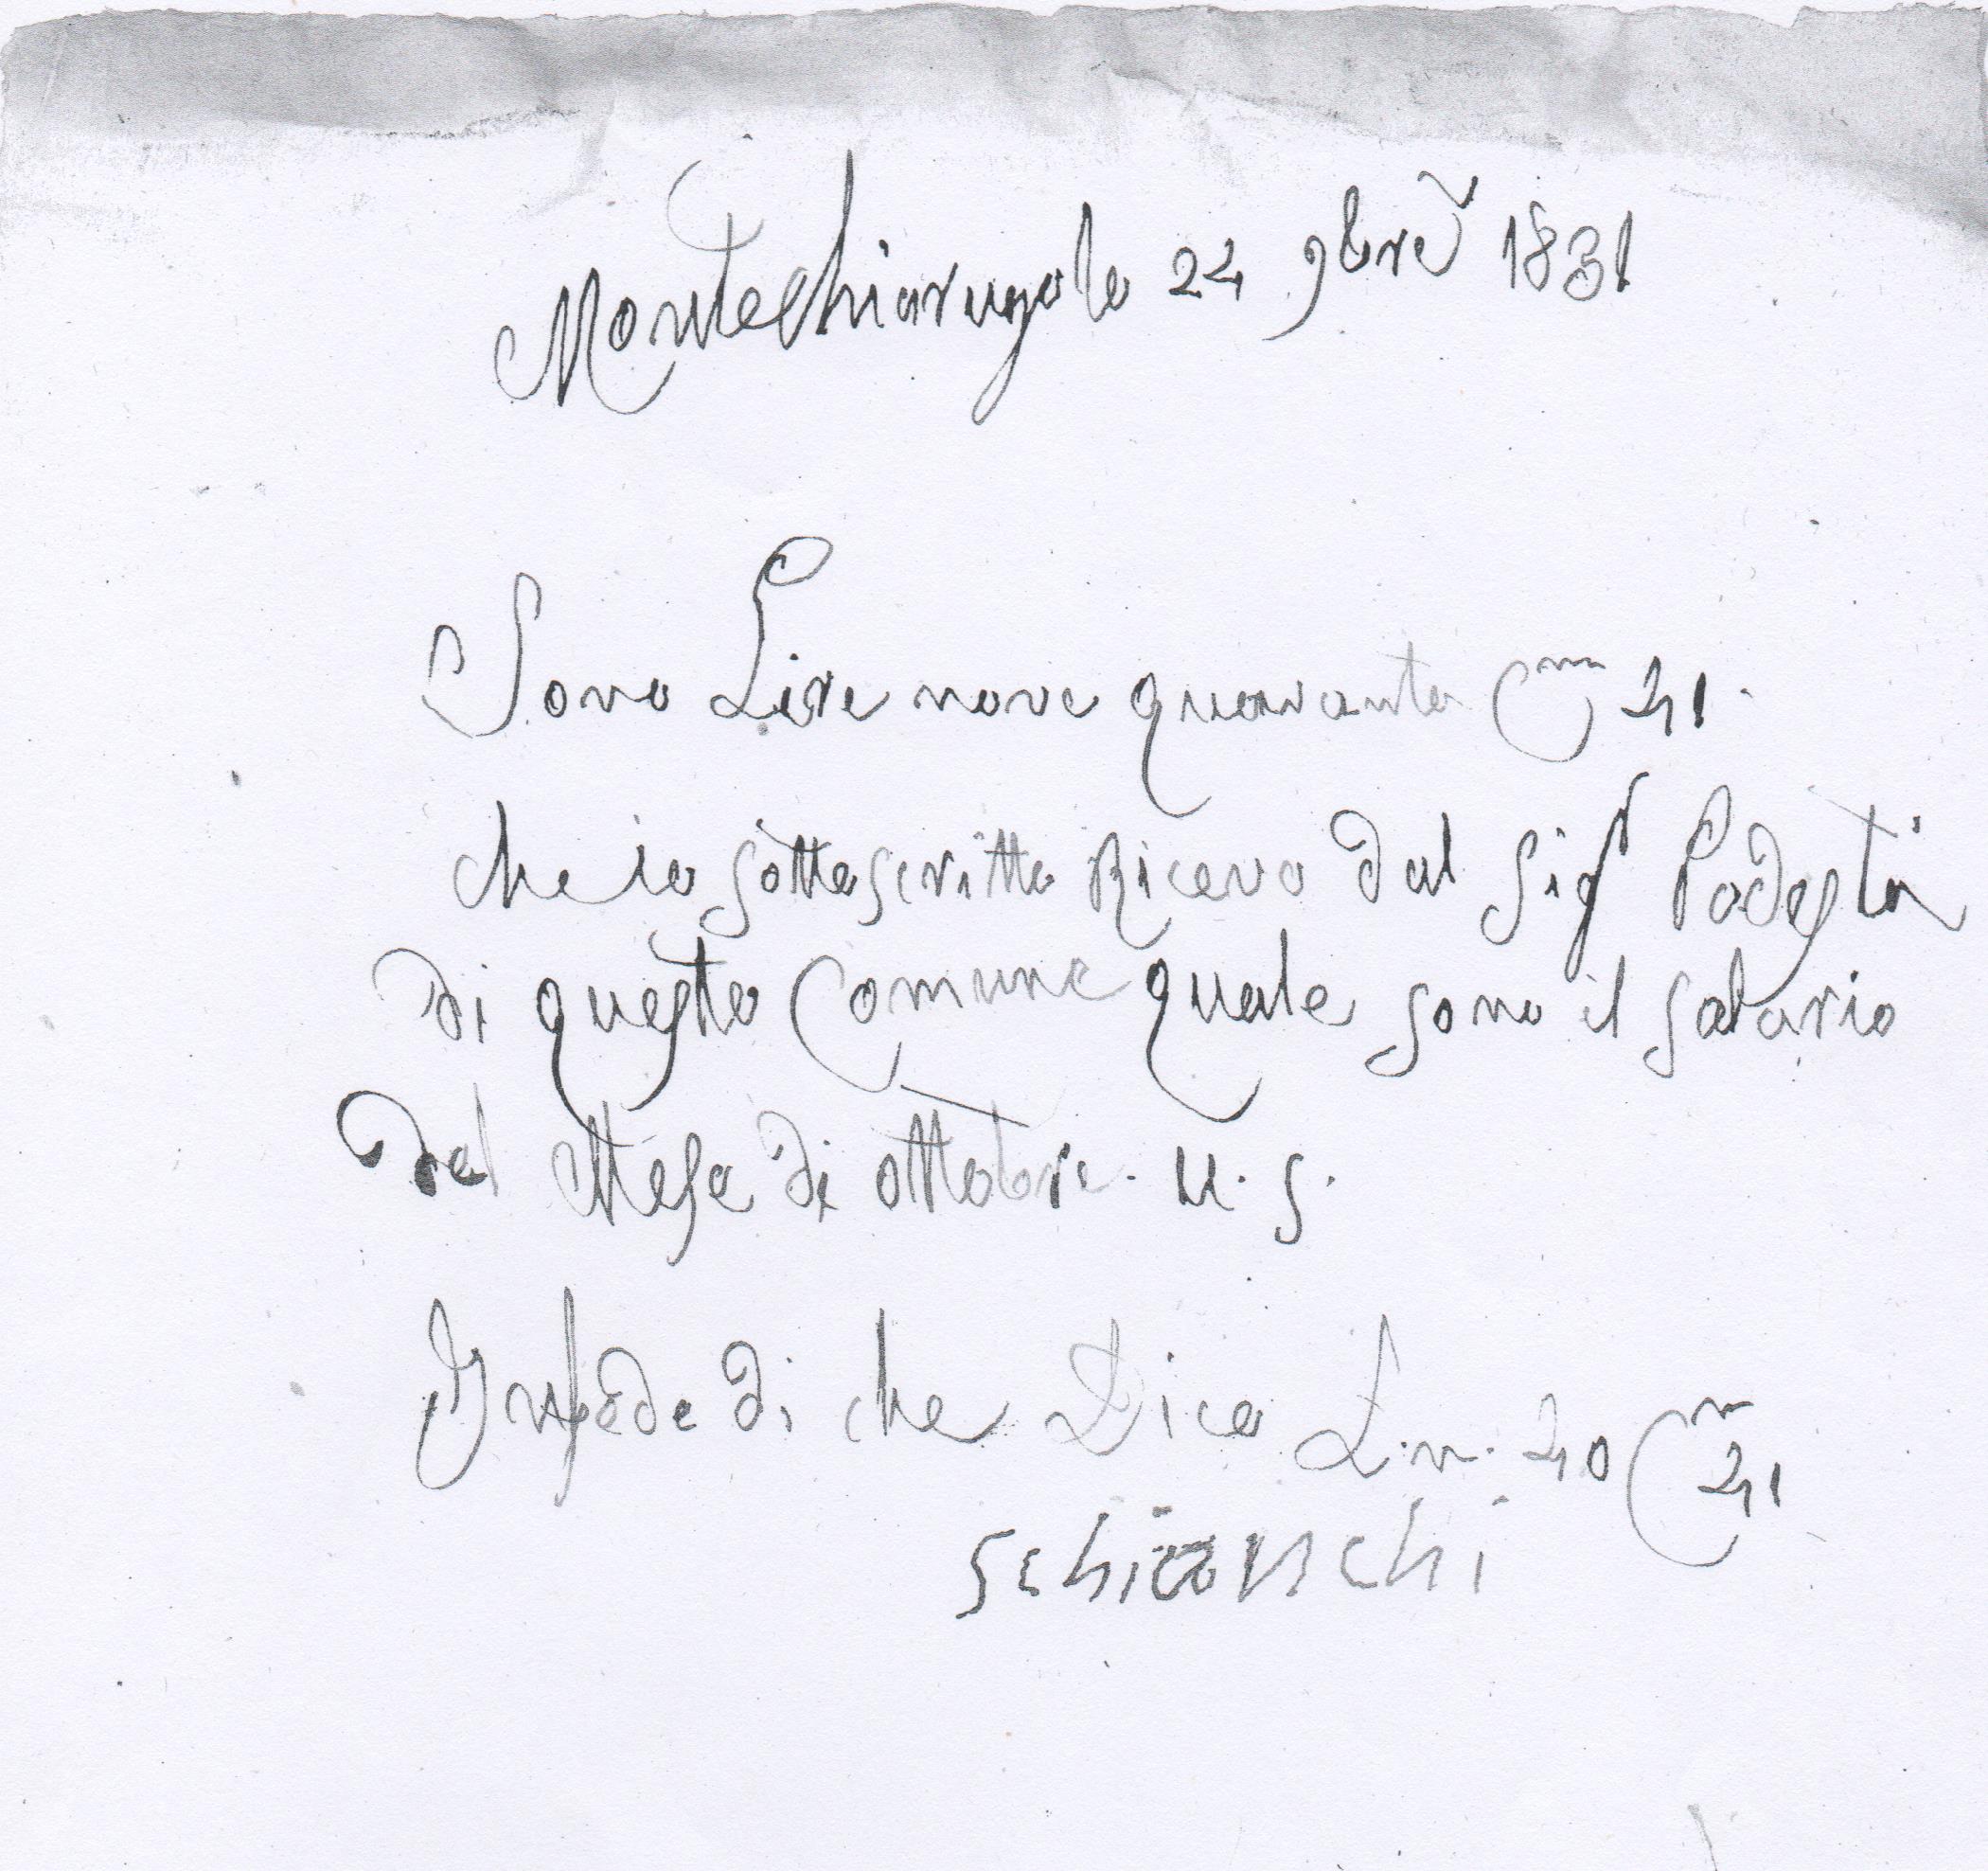 Montechiarugolo 24 9bre 1831
Sono Lire nove quaranta Cmi 41.
che io sottoscritto Ricevo dal Sigr Podestà
di questo Comune quale sono il salario
del Mese di ottobre. u. s.
In fede di che Dico L. n. 40 Cmi 41
Schianchi